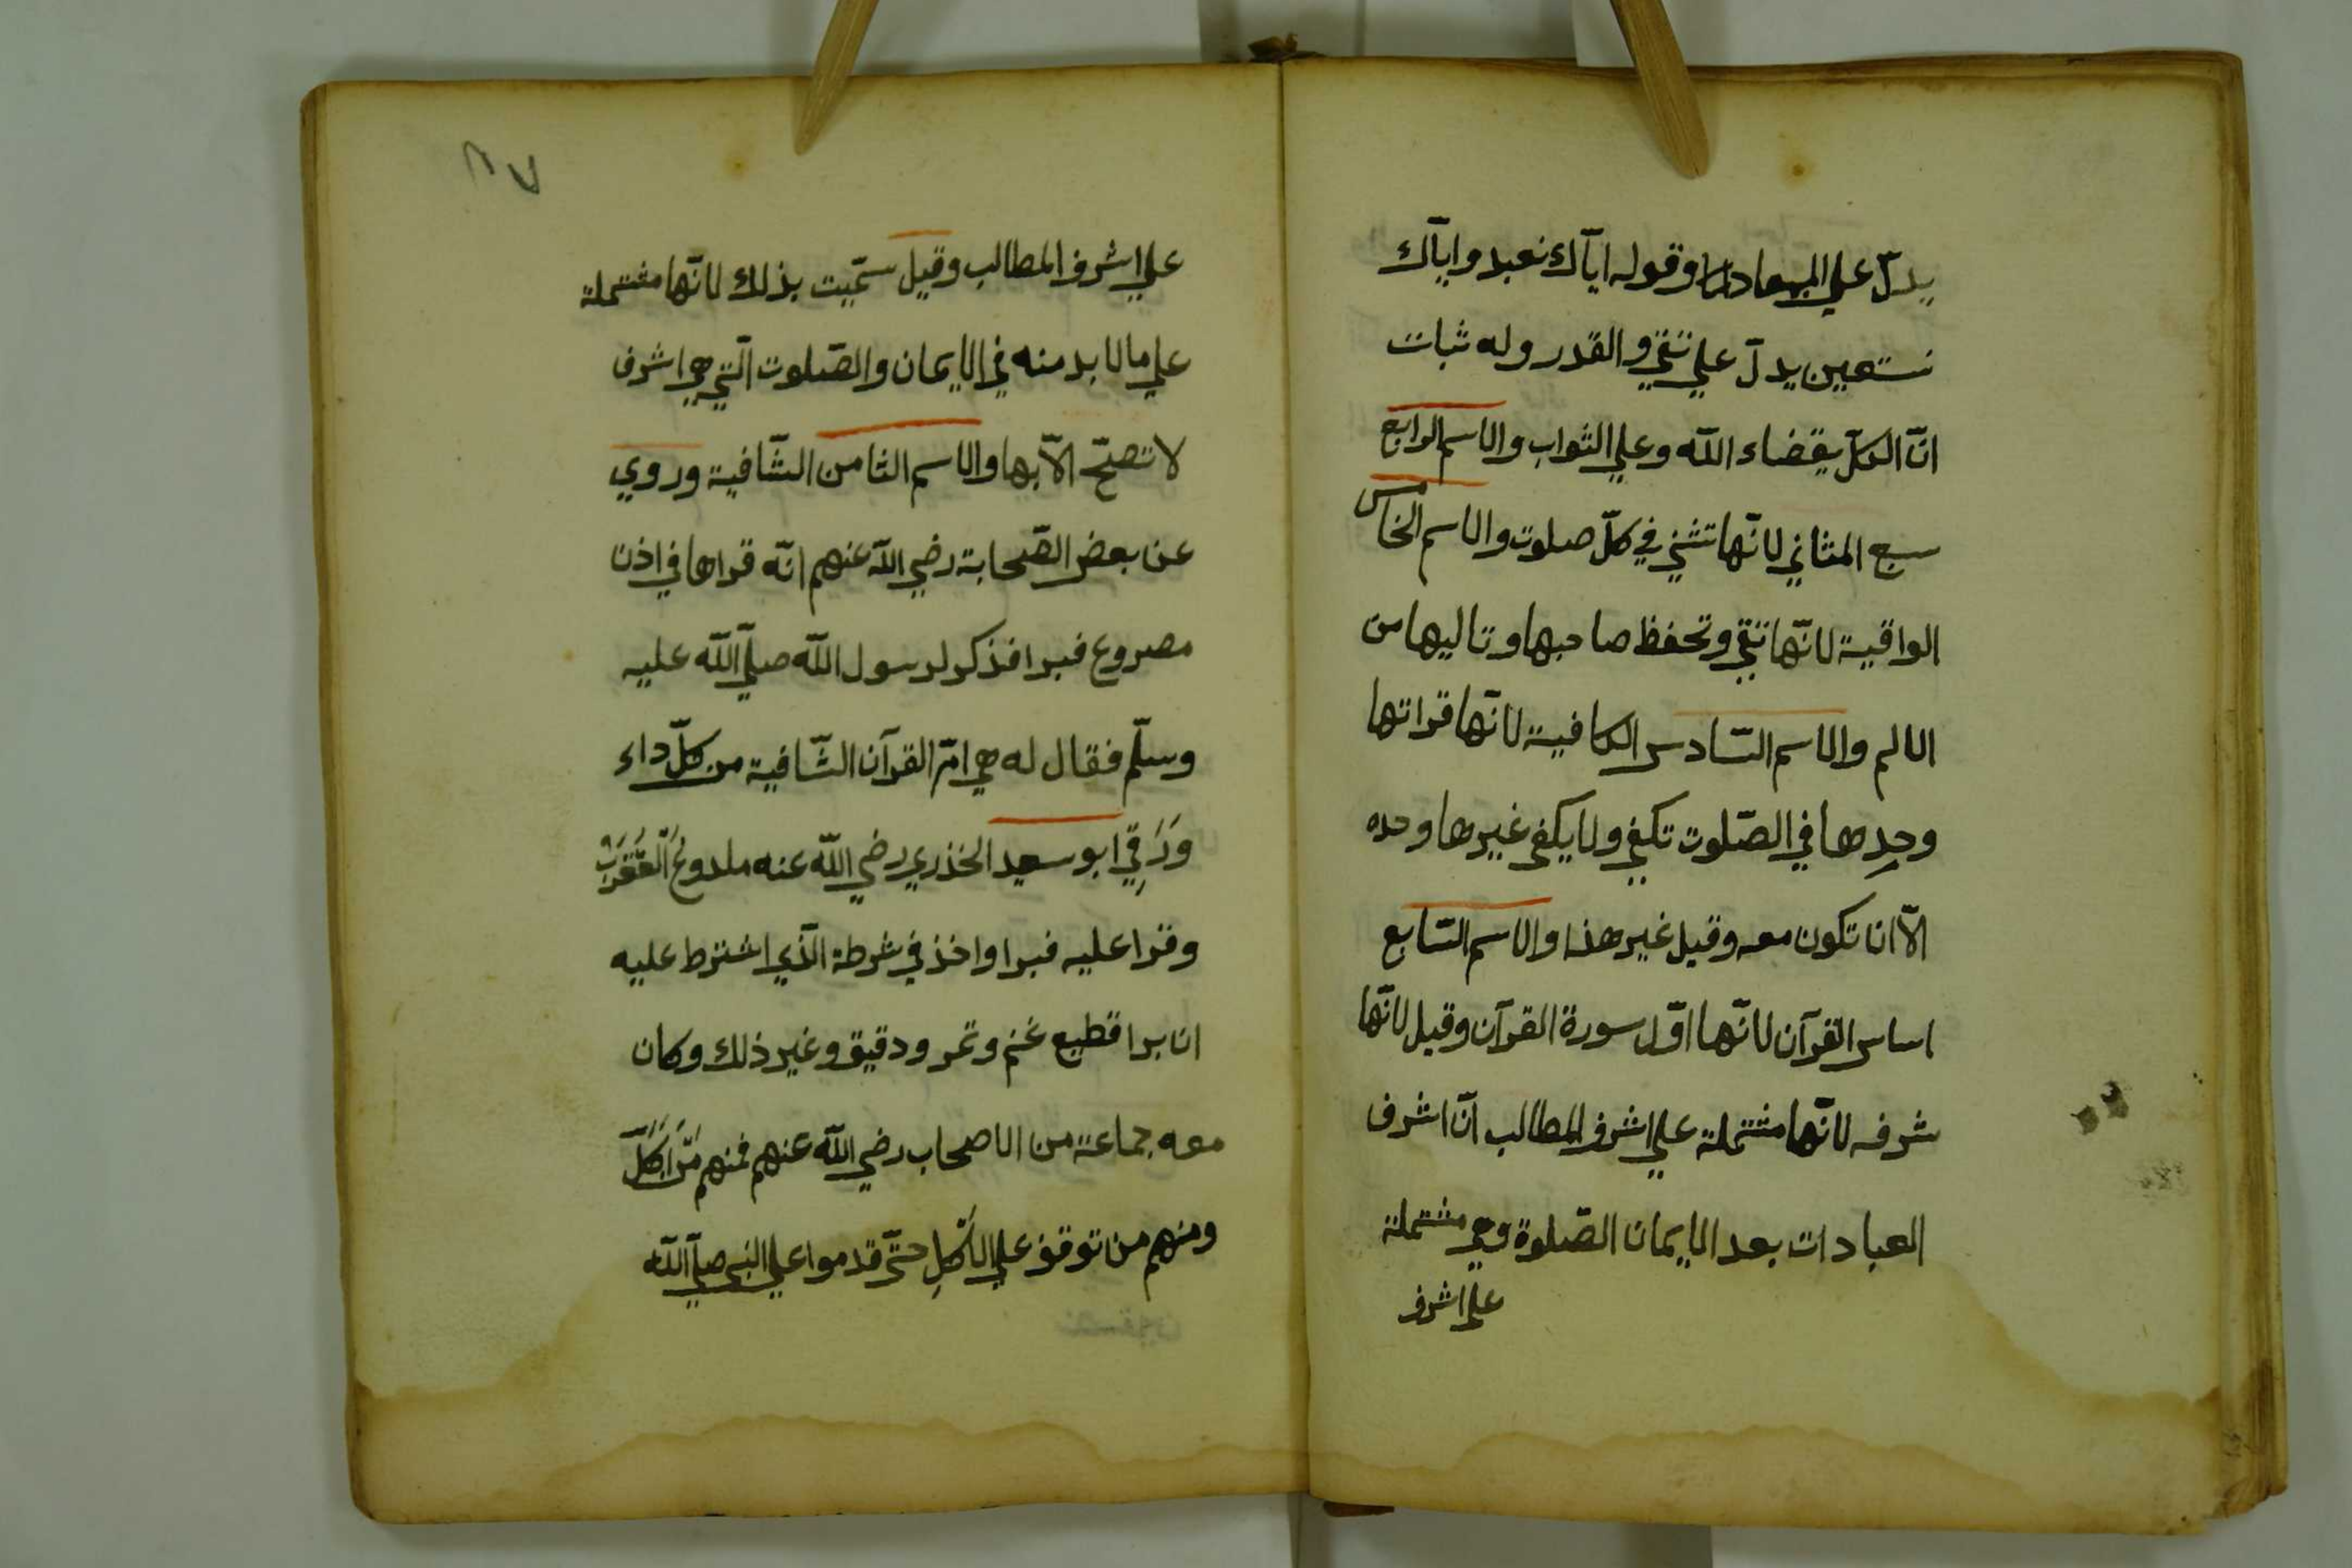 يدلّ علي المعاد وقوله ايآك نعبد وايآك
نستعين يدلّ علي تنفي والقدر وله ثبات
انّ الكلّ بقضاء اللّه وعلي الثواب والاسم الرابع
سبع المثاني لانّها تثني في كلّ صلوت والاسم الخامس
الواقية لانّها تقي وتحفظ صاحبها وتاليها من
الالم والاسم السّادس الكافية لانّها قراتها
وحدِها في الصّلوت تكفي ولا يكفي غيرها وحده
الّا ان تكون معه وقيل غير هذا والاسم السّابع
اساس القرآن لانّها اوّل سورة القرآن وقيل لانّها
شرفه لانّها مشتملة علي اشرف المطالب انّ اشرف
العبادات بعد الايمان الصّلوة وهي مشتملة
علي اشرف
٢٧
علي اشرف المطالب وقيل سمّيت بذلك لانّها مشتملة
علي ما لا بد منه في الايمان والصّلوت الّتي هي اشرف
لا تصحّ الّا بها والاسم الثامن الشّافية وروي
عن بعض الصّحابة رضي اللّه عنهم انّه قراها في اذن
مصروع فبرا فذكر لرسول اللّه صلّي اللّه عليه
وسلّم فقال له هي امّ القرآن الشّافية من كلّ داء
وَرَقِيَ ابو سعيد الخذري رضي اللّه عنه ملدوغ الْعَقْرَبْ
وقرا عليه فبرا واخذ في شرطة الّذي اشترط عليه
ان برا قطيع غنم وتمر ودقيق وغير ذلك وكان
معه جماعة من الاصحاب رضي اللّه عنهم فمنهم مَنْ اَكَلَ
ومنهم من توقف علي الاَكْلِ حتّي قدموا علي النبي صلّي اللّه